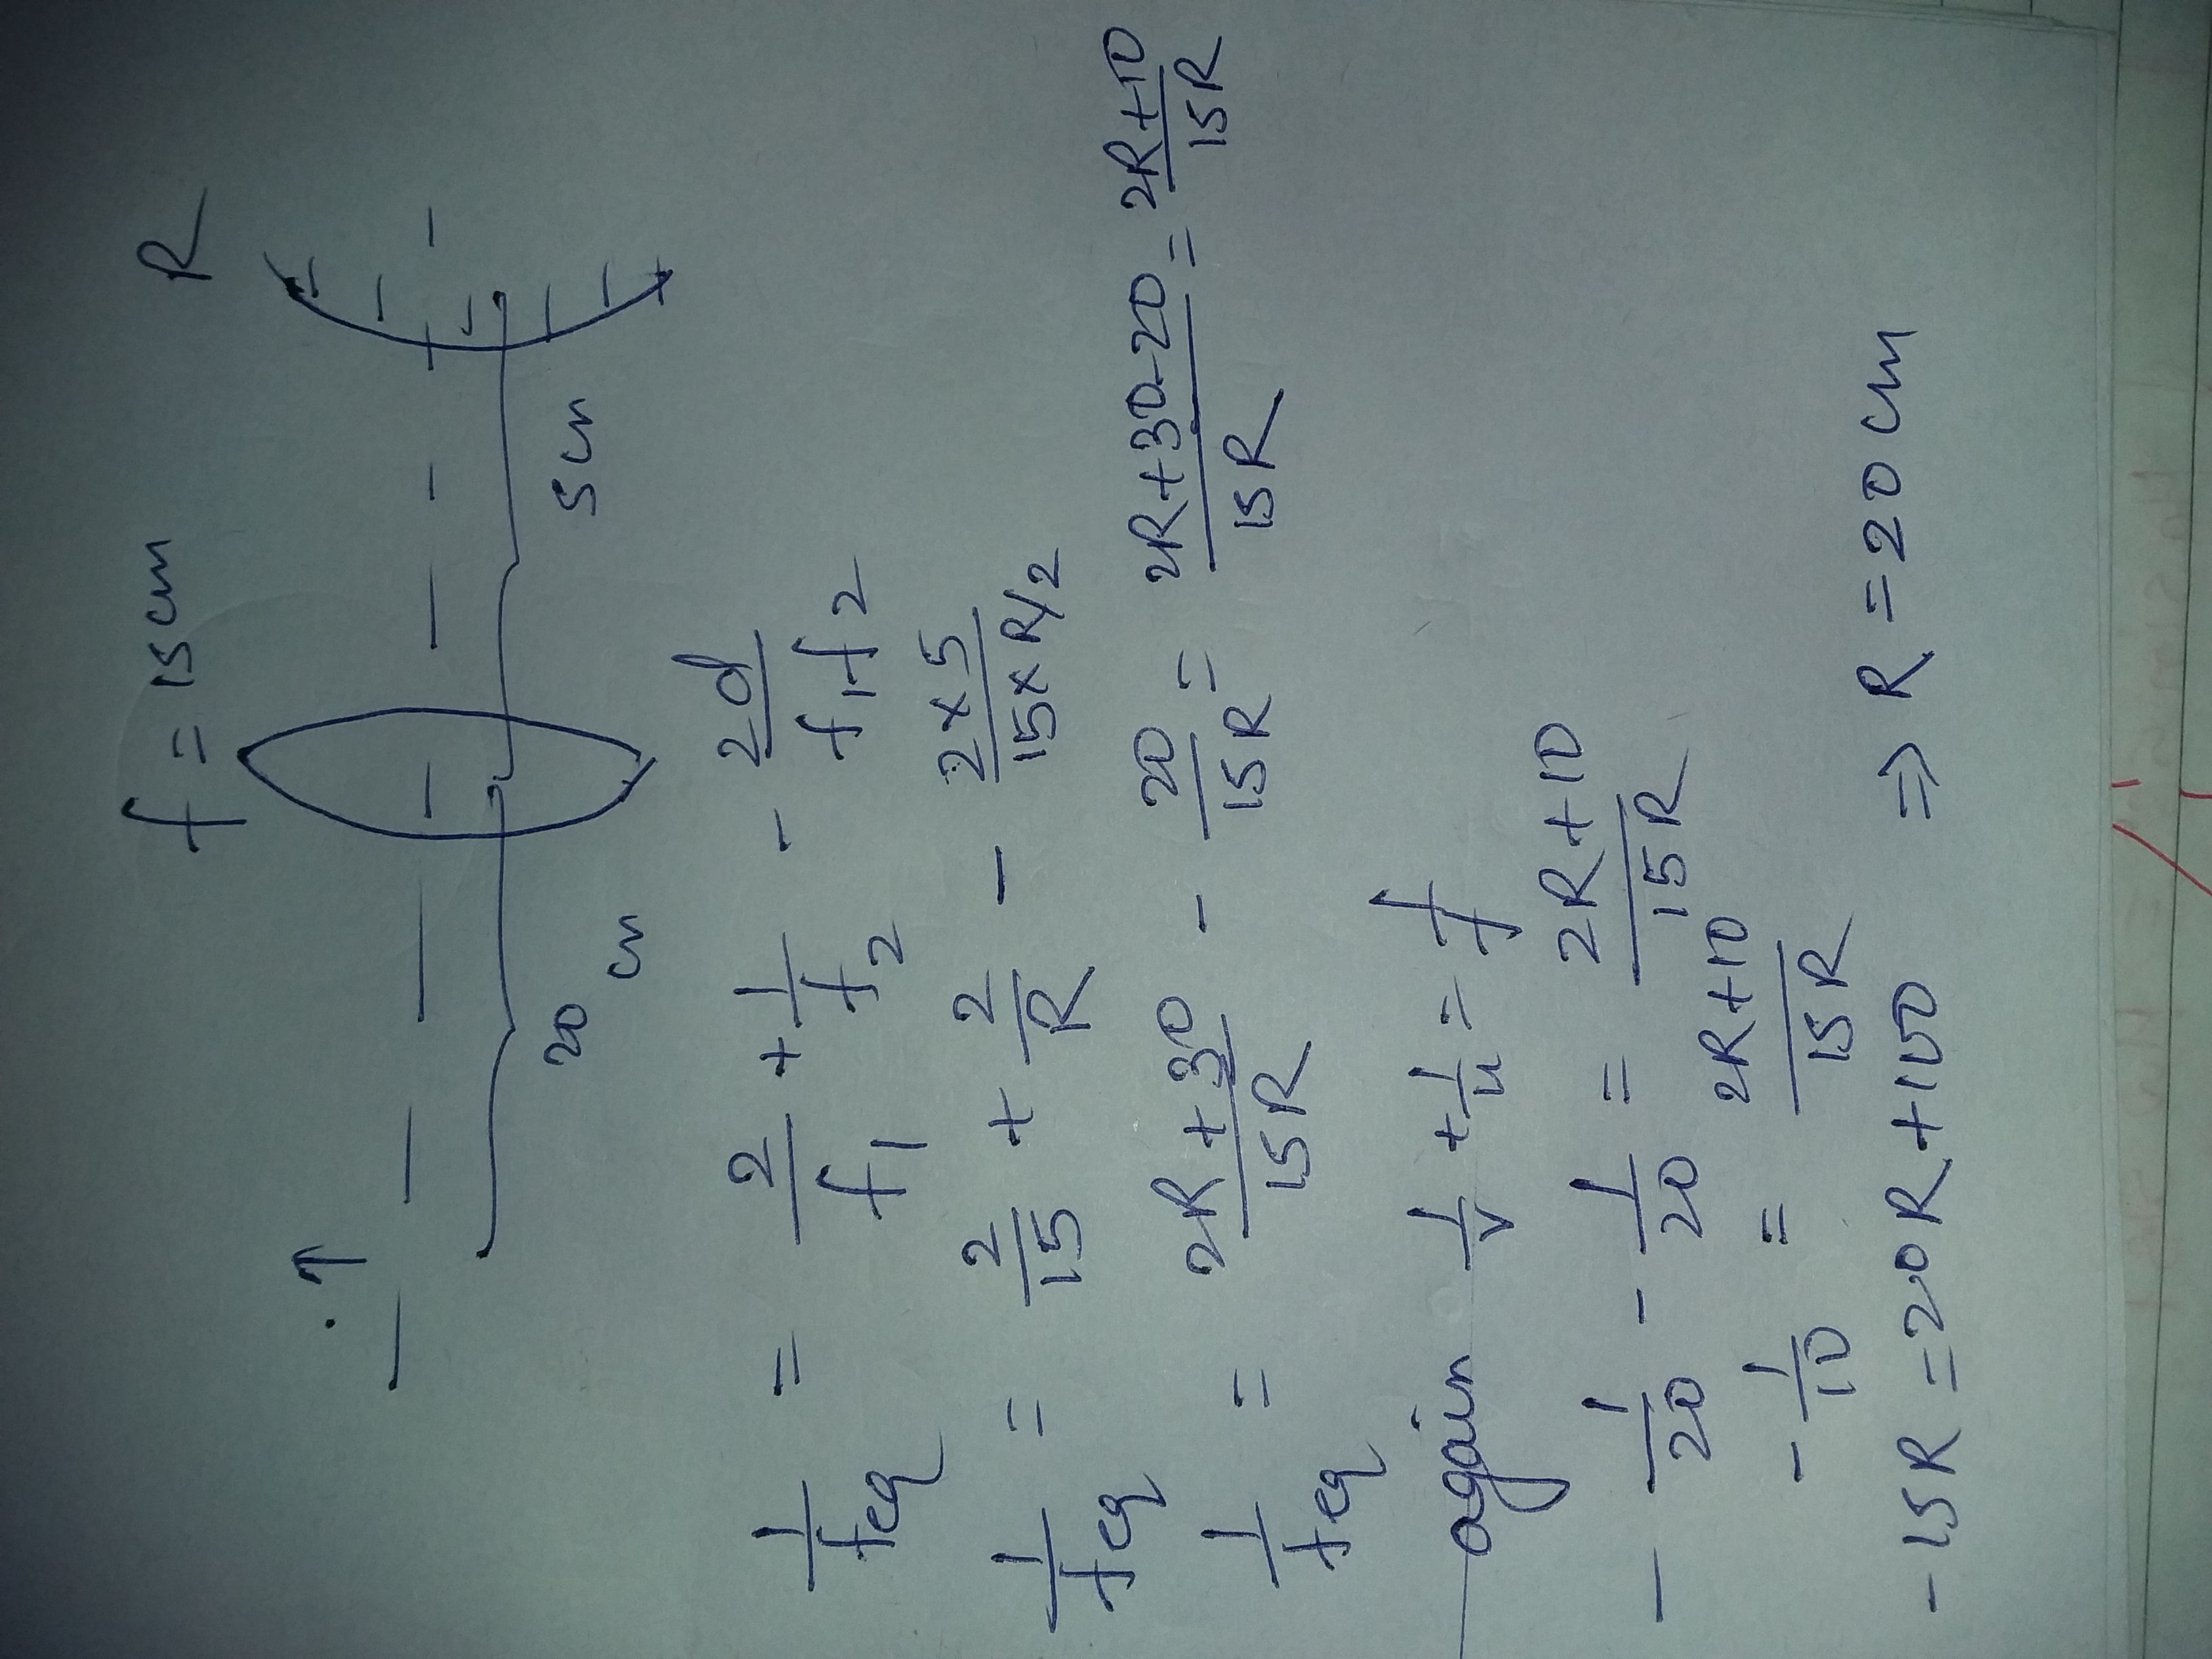 f = 15 cm R
20 cm 5 cm
1/feq = 2/f1 + 1/f2 - 2d/f1f2
1/feq = 2/15 + 2/R - 2×5/15×R/2
1/feq = 2R+30/15R - 20/15R = 2R+30-20/15R = 2R+10/15R
again 1/v + 1/u = 1/f
- 1/20 - 1/20 = 2R+10/15R
- 1/10 = 2R+10/15R
-15R = 20R+100 ⇒ R = 20 cm